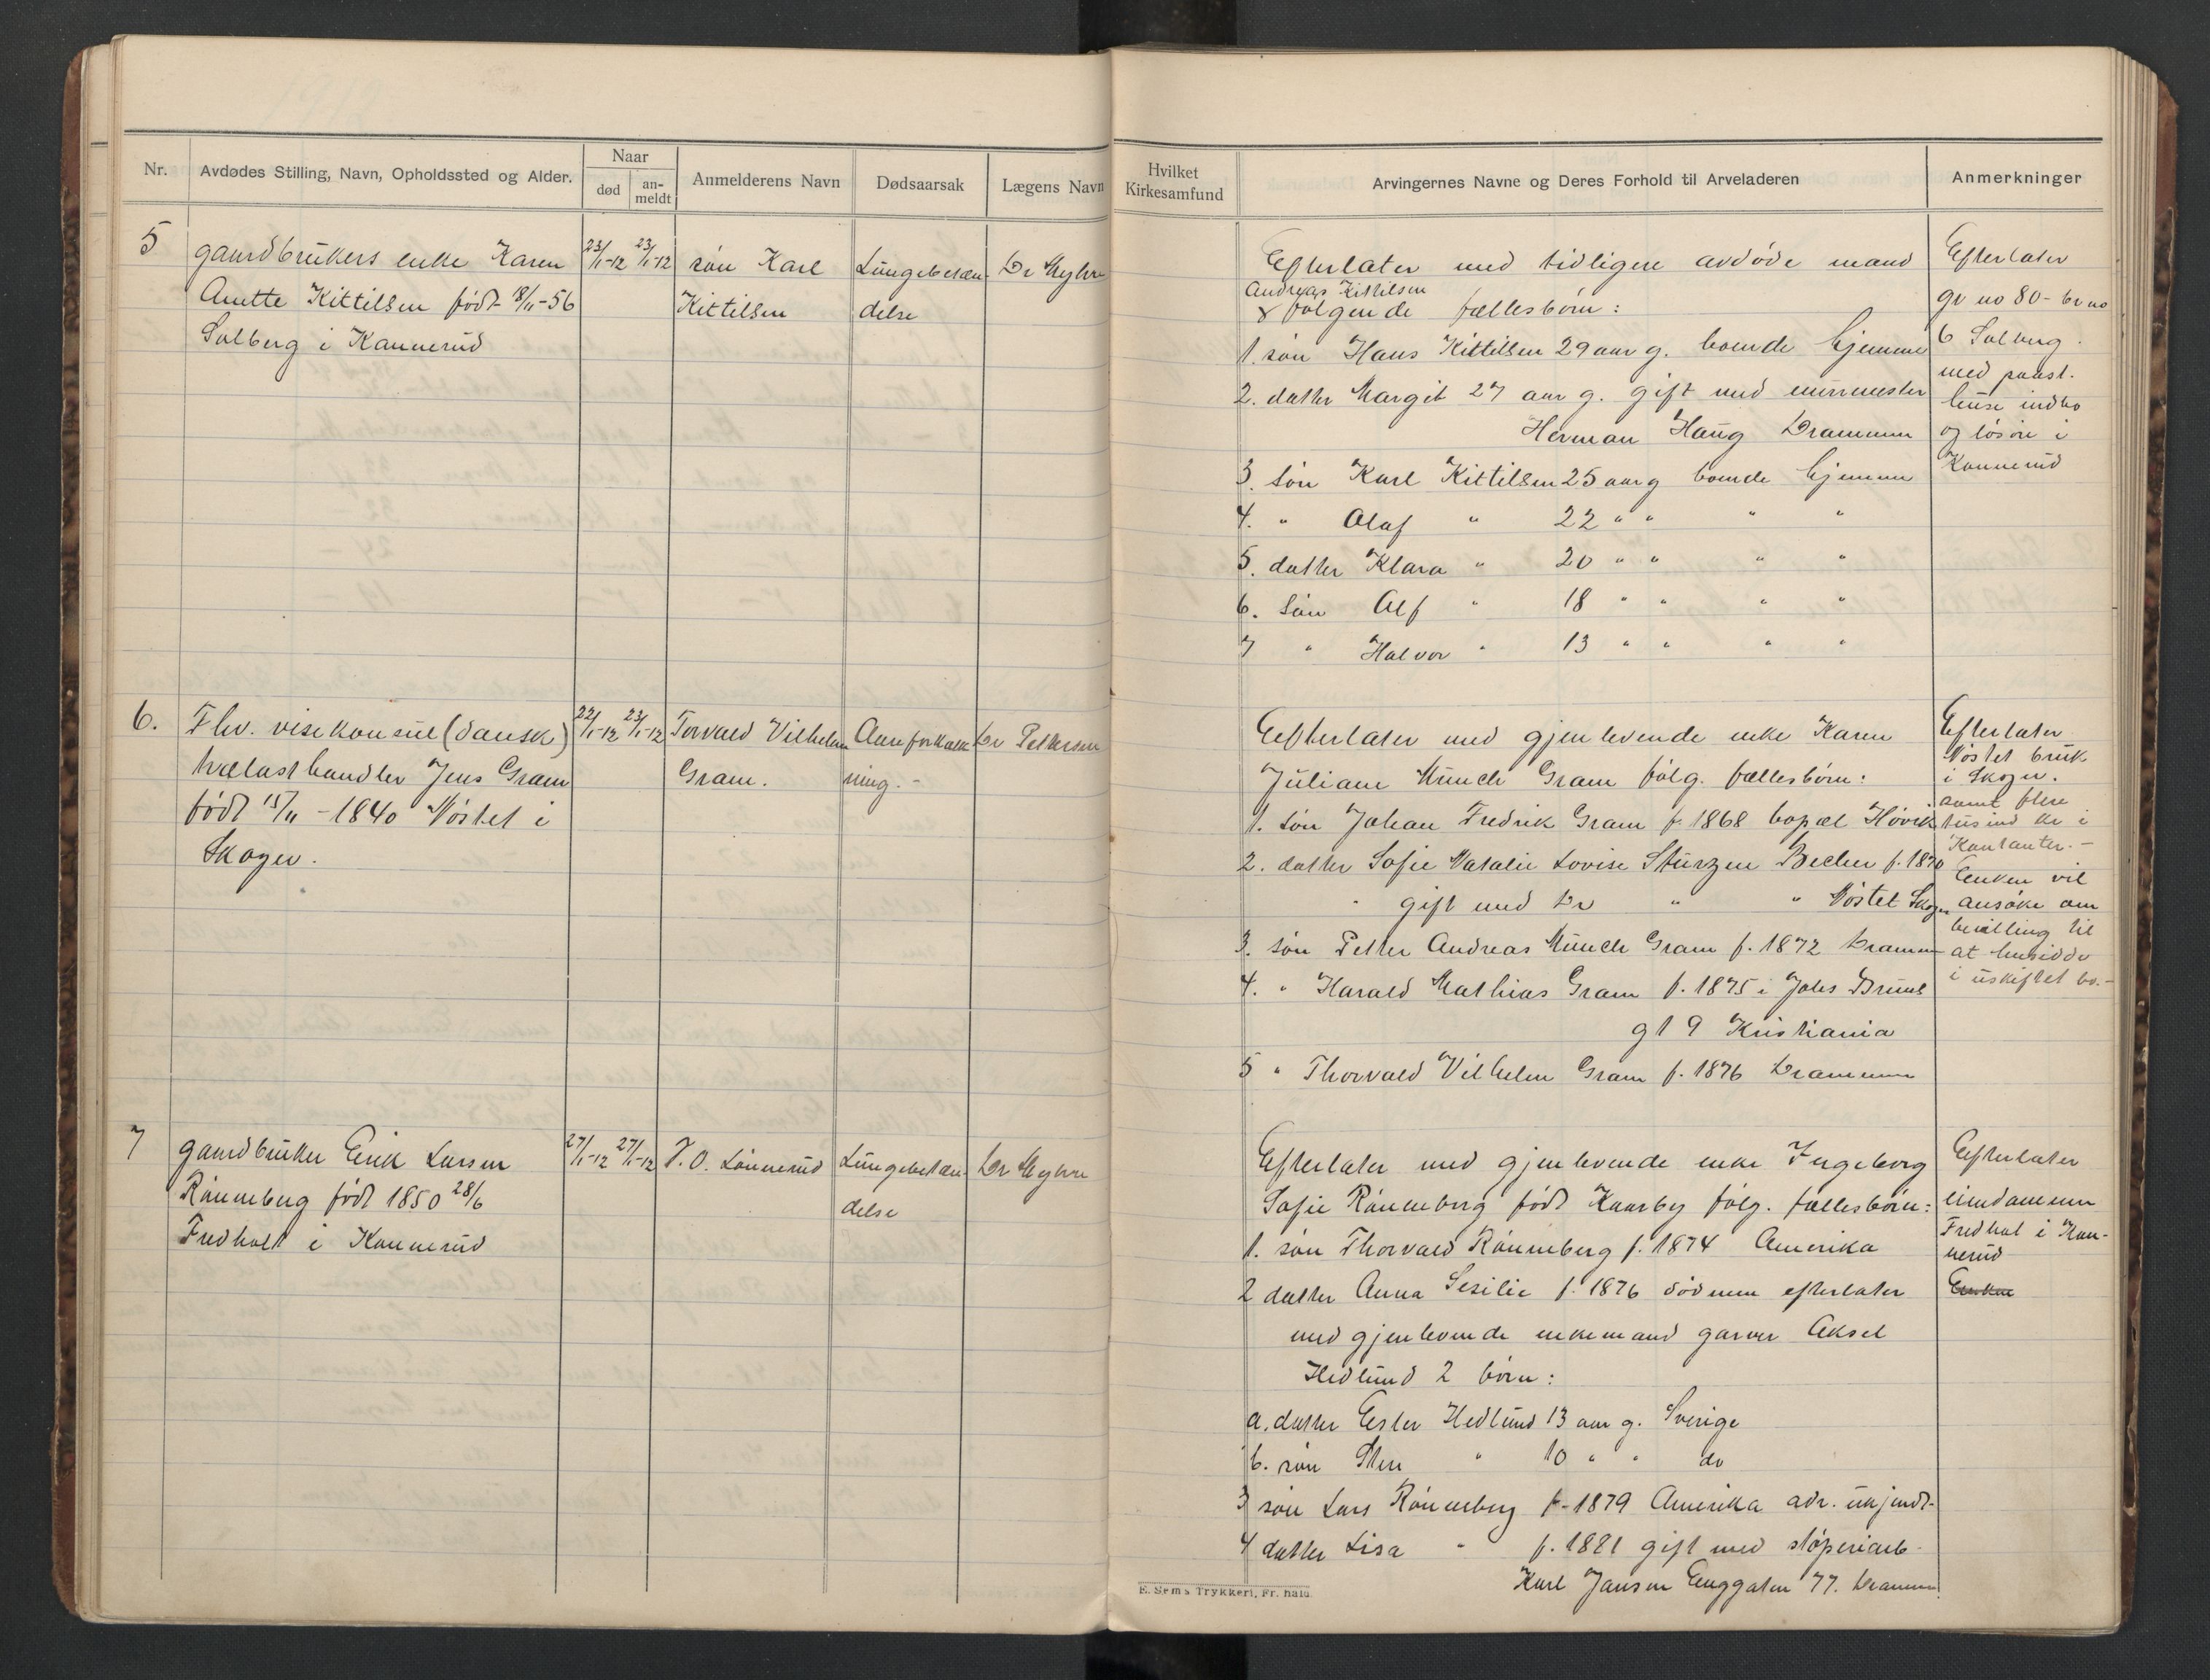 Nr.
Avdødes Stilling, Navn, Opholdssted og Alder.
Naar
død
an-
meldt
Anmelderens Navn
Dødsaarsak
Lægens Navn
Hvilket
Kirkesamfund
Arvingernes Navne og Deres Forhold til Arveladeren
Anmerkninger
5
gaardbrukers enke Karen
Anette Kittilsen født 18/11-56
Solberg i Konnerud
23/1-12
23/1-12
søn Karl
Kittilsen
Lungebetæn-
delse
Dr Myhre
Efterlater med tidligere avdøde mand
Andreas Kittilsen
x følgende fællesbørn:
1. søn Hans Kittilsen 29 aar g. boende hjemme
2. datter Margit 27 aar g. gift med murmester
Herman Haug Drammen
3. søn Karl Kittilsen 25 aar g boende hjemme
4. " Olaf " 22 " " " "
5. datter Klara " 20 " " " "
6. Søn Alf " 18 " " " "
7 " Halvor " 13 " " " "
Efterlater
gr no 80 - br no
6 Solberg.
med paast.
huse indbo
og løsøre i
Konnerud
6.
Fhv. visekonsul (dansk)
trælasthandler Jens Gram
født 15/11 - 1840 Nøstet i
Skoger.
22/1-12
23/1-12
Torvald Vilhelm
Gram.
Aareforkalk
ning. -
Dr Pettersen
Efterlater med gjenlevende enke Karen
Juliane Munch Gram følg. fællesbørn:
1. søn Johan Fredrik Gram f. 1868 bopæl Høvik
2. datter Sofie Natalie Lovise Sturzen Becker f. 1870
gift med Dr " " Nøstet Skoger
3. søn Petter Andreas Munch Gram f. 1872 Drammen
4. " Harald Mathias Gram f. 1875 i Johs Bruns
gt 9 Kristiania
5 " Thorvald Vilhelm Gram f. 1876 Drammen
Efterlater
Nøstet bruk
i Skoger.
samt flere
tusind kr i
Kontanter. -
Enken vil
ansøke om
bevilling til
at hensidde
i uskiftet bo. -
7
gaardbruker Erik Larsen
Rønneberg født 1850 28/6
Fredholt i Konnerud
27/1-12
27/1-12
T. O. Lønnerud
Lungebetæn-
delse
Dr Myhre
Efterlater med gjenlevende enke Ingeborg
Sofie Rønneberg født Kaarby følg. fællesbørn:
1. søn Thorvald Rønneberg f. 1874 Amerika
2 datter Anna Sesilie f. 1876 død men efterlater
med gjenlevende enkemand garver Aksel
Hedlund 2 børn:
a. datter Ester Hedlund 13 aar g. Sverige
b. søn Sture " 10 " " do
3 søn Lars Rønneberg f. 1879 Amerika adr. ukjendt-
4 datter Lisa " f. 1881 gift med støperiarb.
Karl Jansen Enggaten 77. Drammen
Efterlater
eiendommen
Fredhol i Kon-
nerud
Enken
E. Sems Trykkeri, Fr.hald.